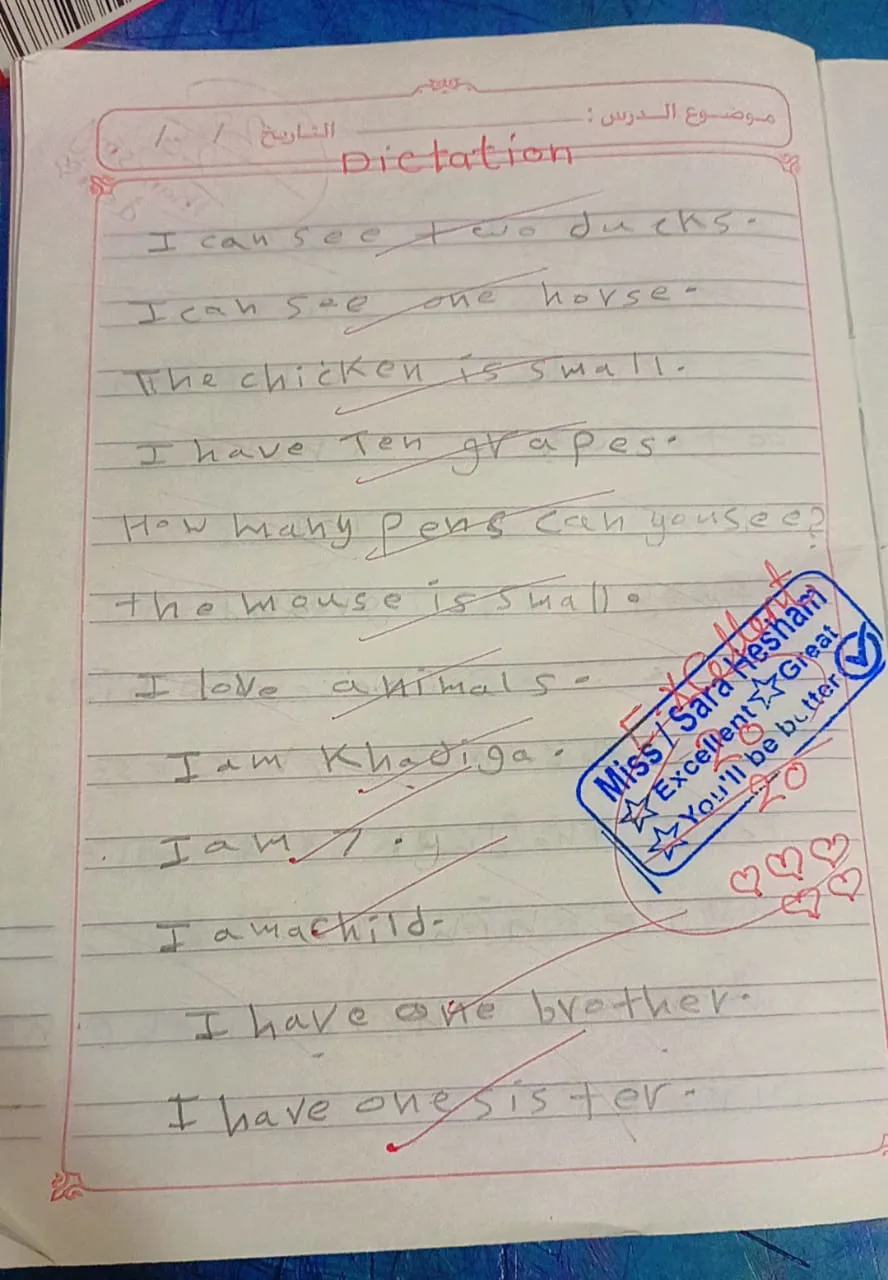 موضوع الدرس :
التاريخ / /
Dictation
I can see two ducks.
I can see one horse.
The chicken is small.
I have Ten grapes.
How many pens can you see?
the mouse is small.
I love animals.
I am Khadiga.
I am 7.
I am a child.
I have one brother.
I have one sister.
Excellent
Miss / Sara Hesham
Excellent Great
You'll be butter
20
20